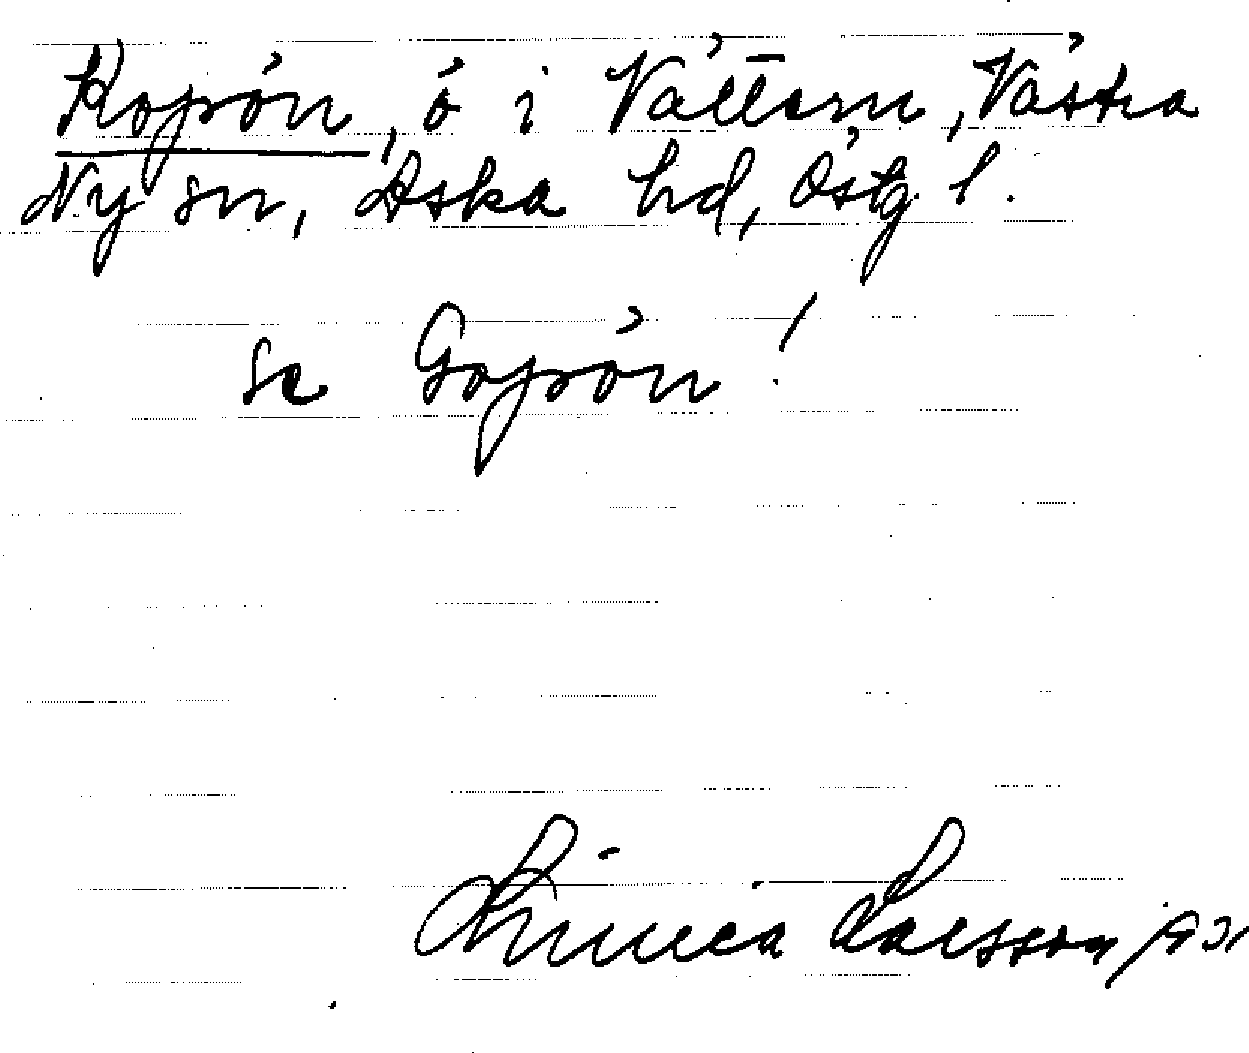 Kopön, ö i Vättern, Västra
Ny sn, Aska hd, Östg. l.
se Gopön!
Linnéa Larsson 1931